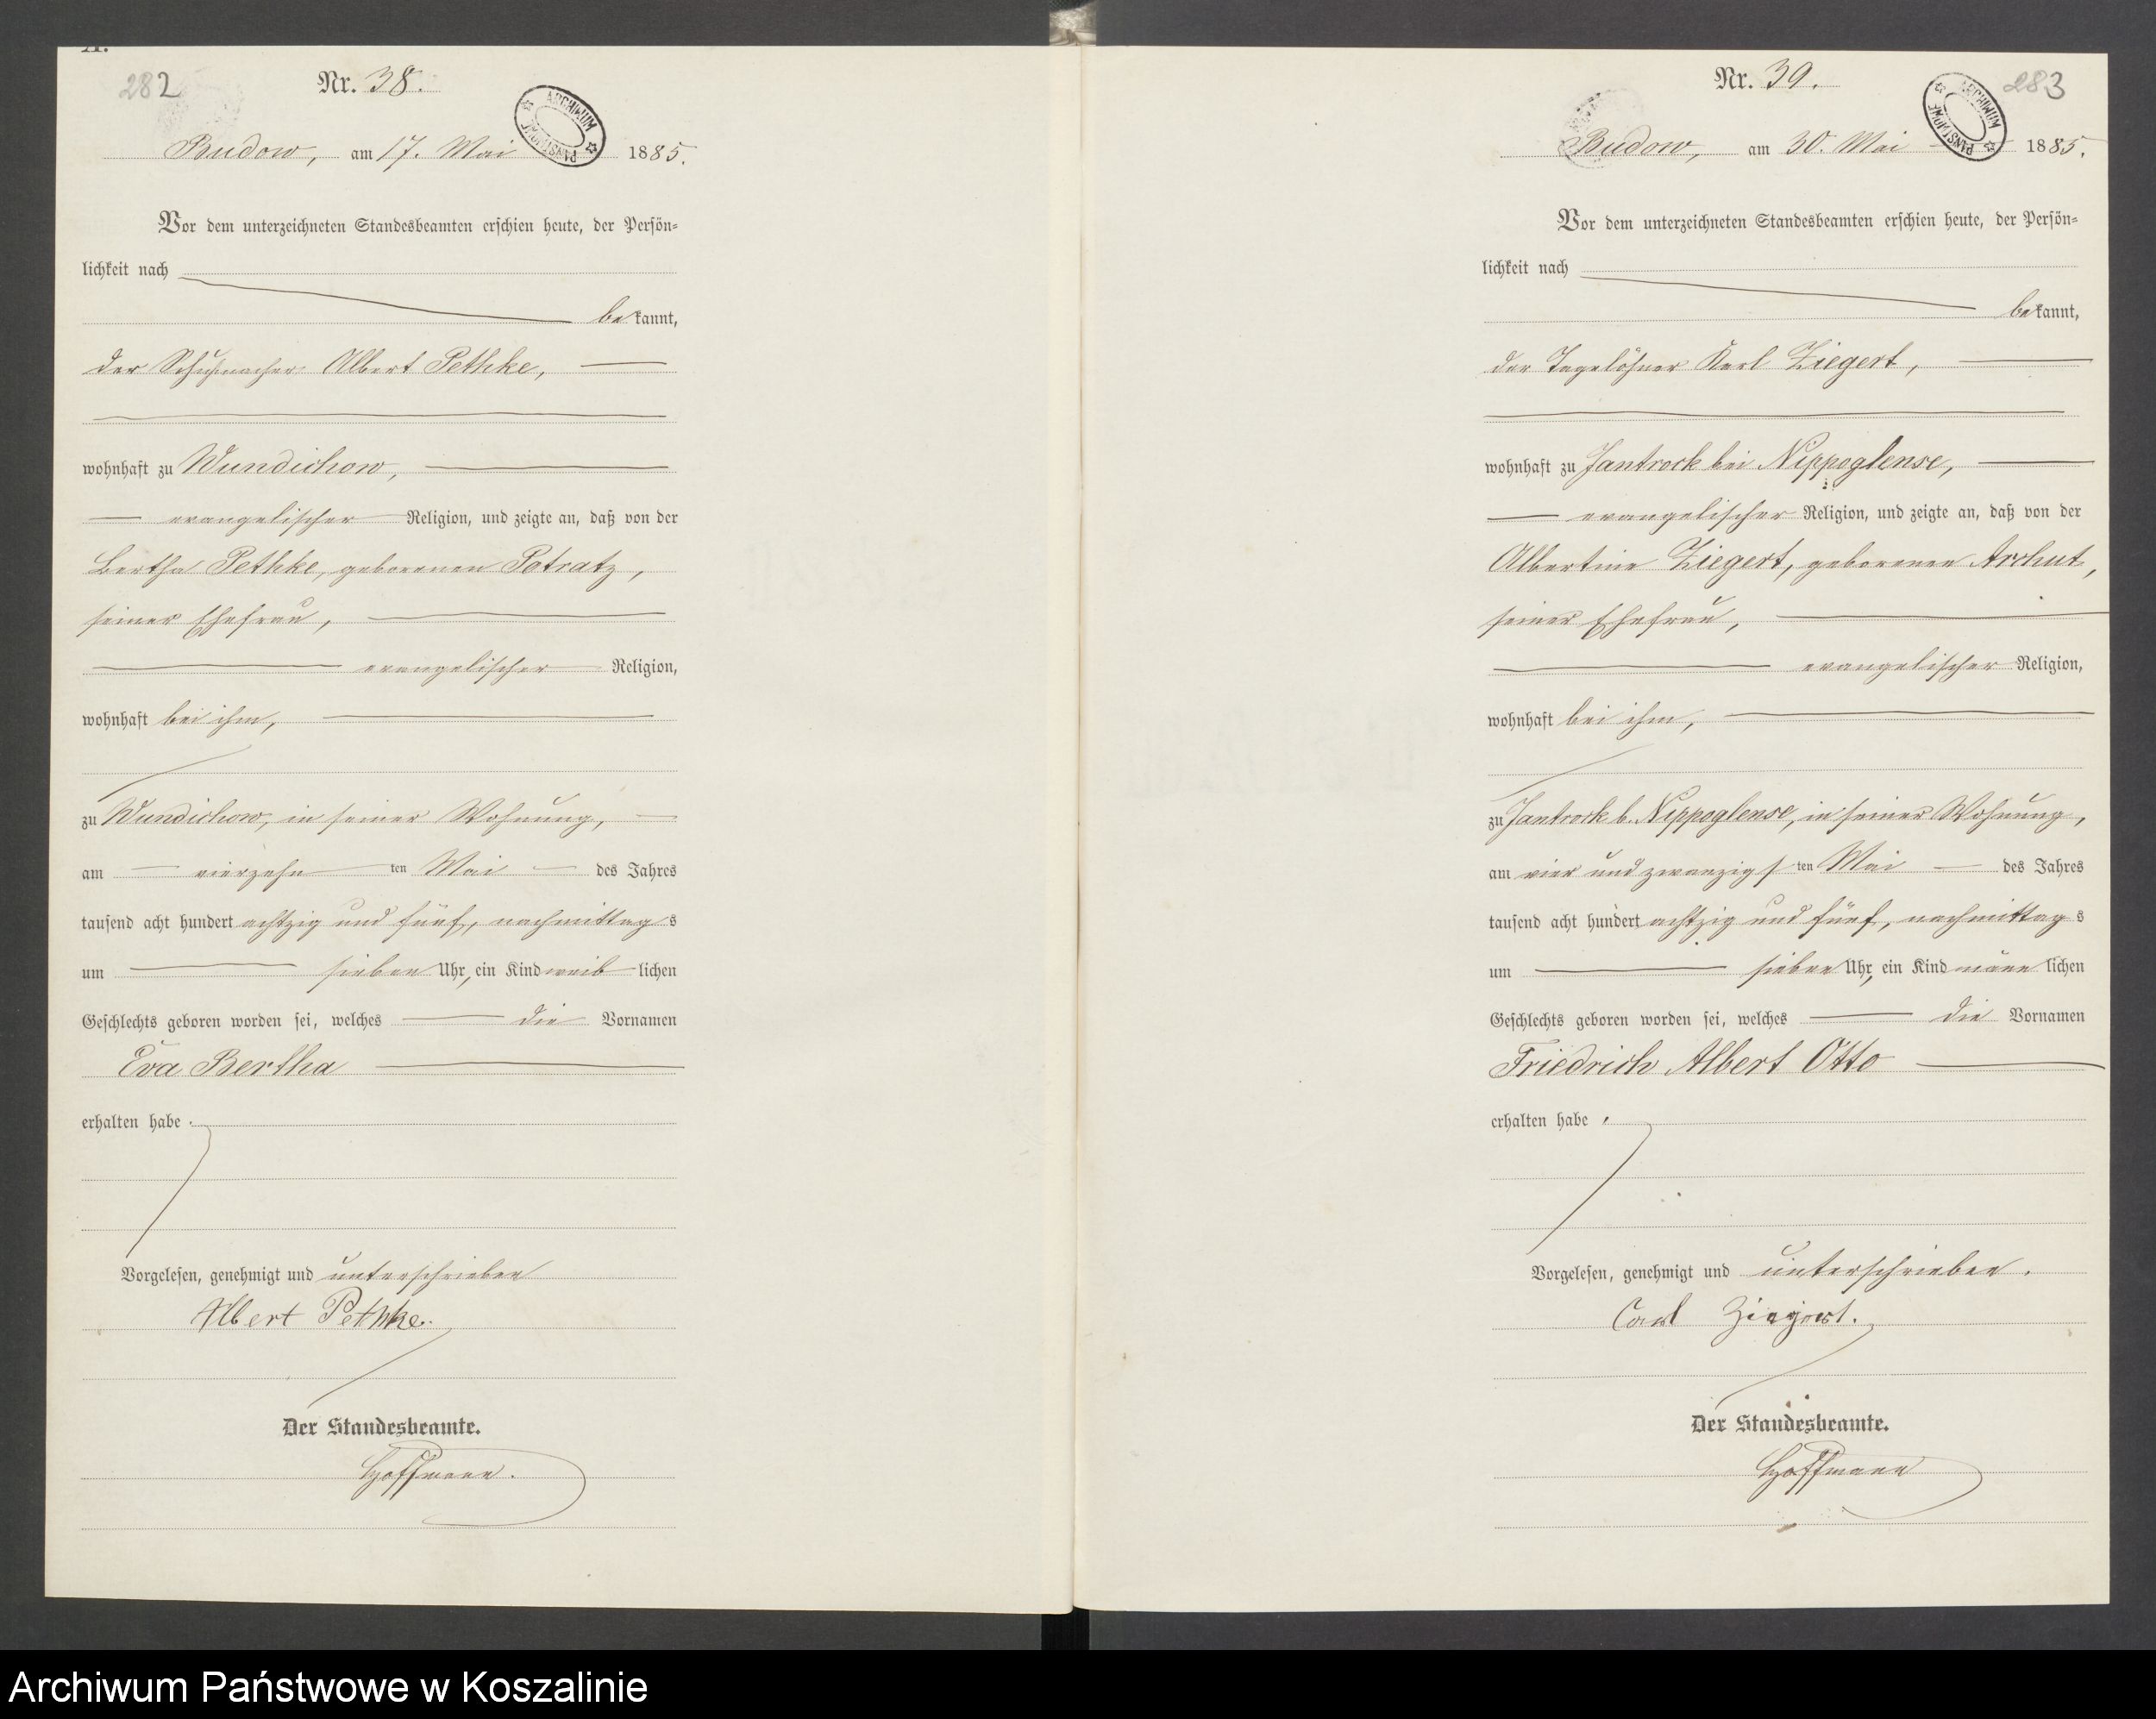 A.
282
Nr. 38.
ARCHIWUM PAŃSTWOWE
Budow, am 17. Mai 1885.
Vor dem unterzeichneten Standesbeamten erschien heute, der Persön-
lichkeit nach
bekannt,
der Schuhmacher Albert Pethke,
wohnhaft zu Wundichow,
evangelischer Religion, und zeigte an, daß von der
Bertha Pethke, geborenen Potratz,
seiner Ehefrau,
evangelischer Religion,
wohnhaft bei ihm,
zu Wundichow, in seiner Wohnung,
am vierzehn ten Mai des Jahres
tausend acht hundert achtzig und fünf, nachmittags
um sieben Uhr, ein Kind weiblichen
Geschlechts geboren worden sei, welches die Vornamen
Eva Bertha
erhalten habe.
Vorgelesen, genehmigt und unterschrieben
Albert Pethke.
Der Standesbeamte.
Hoffmann.
283
Nr. 39.
ARCHIWUM PAŃSTWOWE
Budow, am 30. Mai 1885.
Vor dem unterzeichneten Standesbeamten erschien heute, der Persön-
lichkeit nach
bekannt,
der Tagelöhner Karl Ziegert,
wohnhaft zu Jantrock bei Nippoglense,
evangelischer Religion, und zeigte an, daß von der
Albertine Ziegert, geborenen Archut,
seiner Ehefrau,
evangelischer Religion,
wohnhaft bei ihm,
zu Jantrock b. Nippoglense, in seiner Wohnung,
am vier und zwanzigsten Mai des Jahres
tausend acht hundert achtzig und fünf, nachmittags
um sieben Uhr, ein Kind männlichen
Geschlechts geboren worden sei, welches die Vornamen
Friedrich Albert Otto
erhalten habe.
Vorgelesen, genehmigt und unterschrieben.
Carl Ziegert.
Der Standesbeamte.
Hoffmann
Archiwum Państwowe w Koszalinie